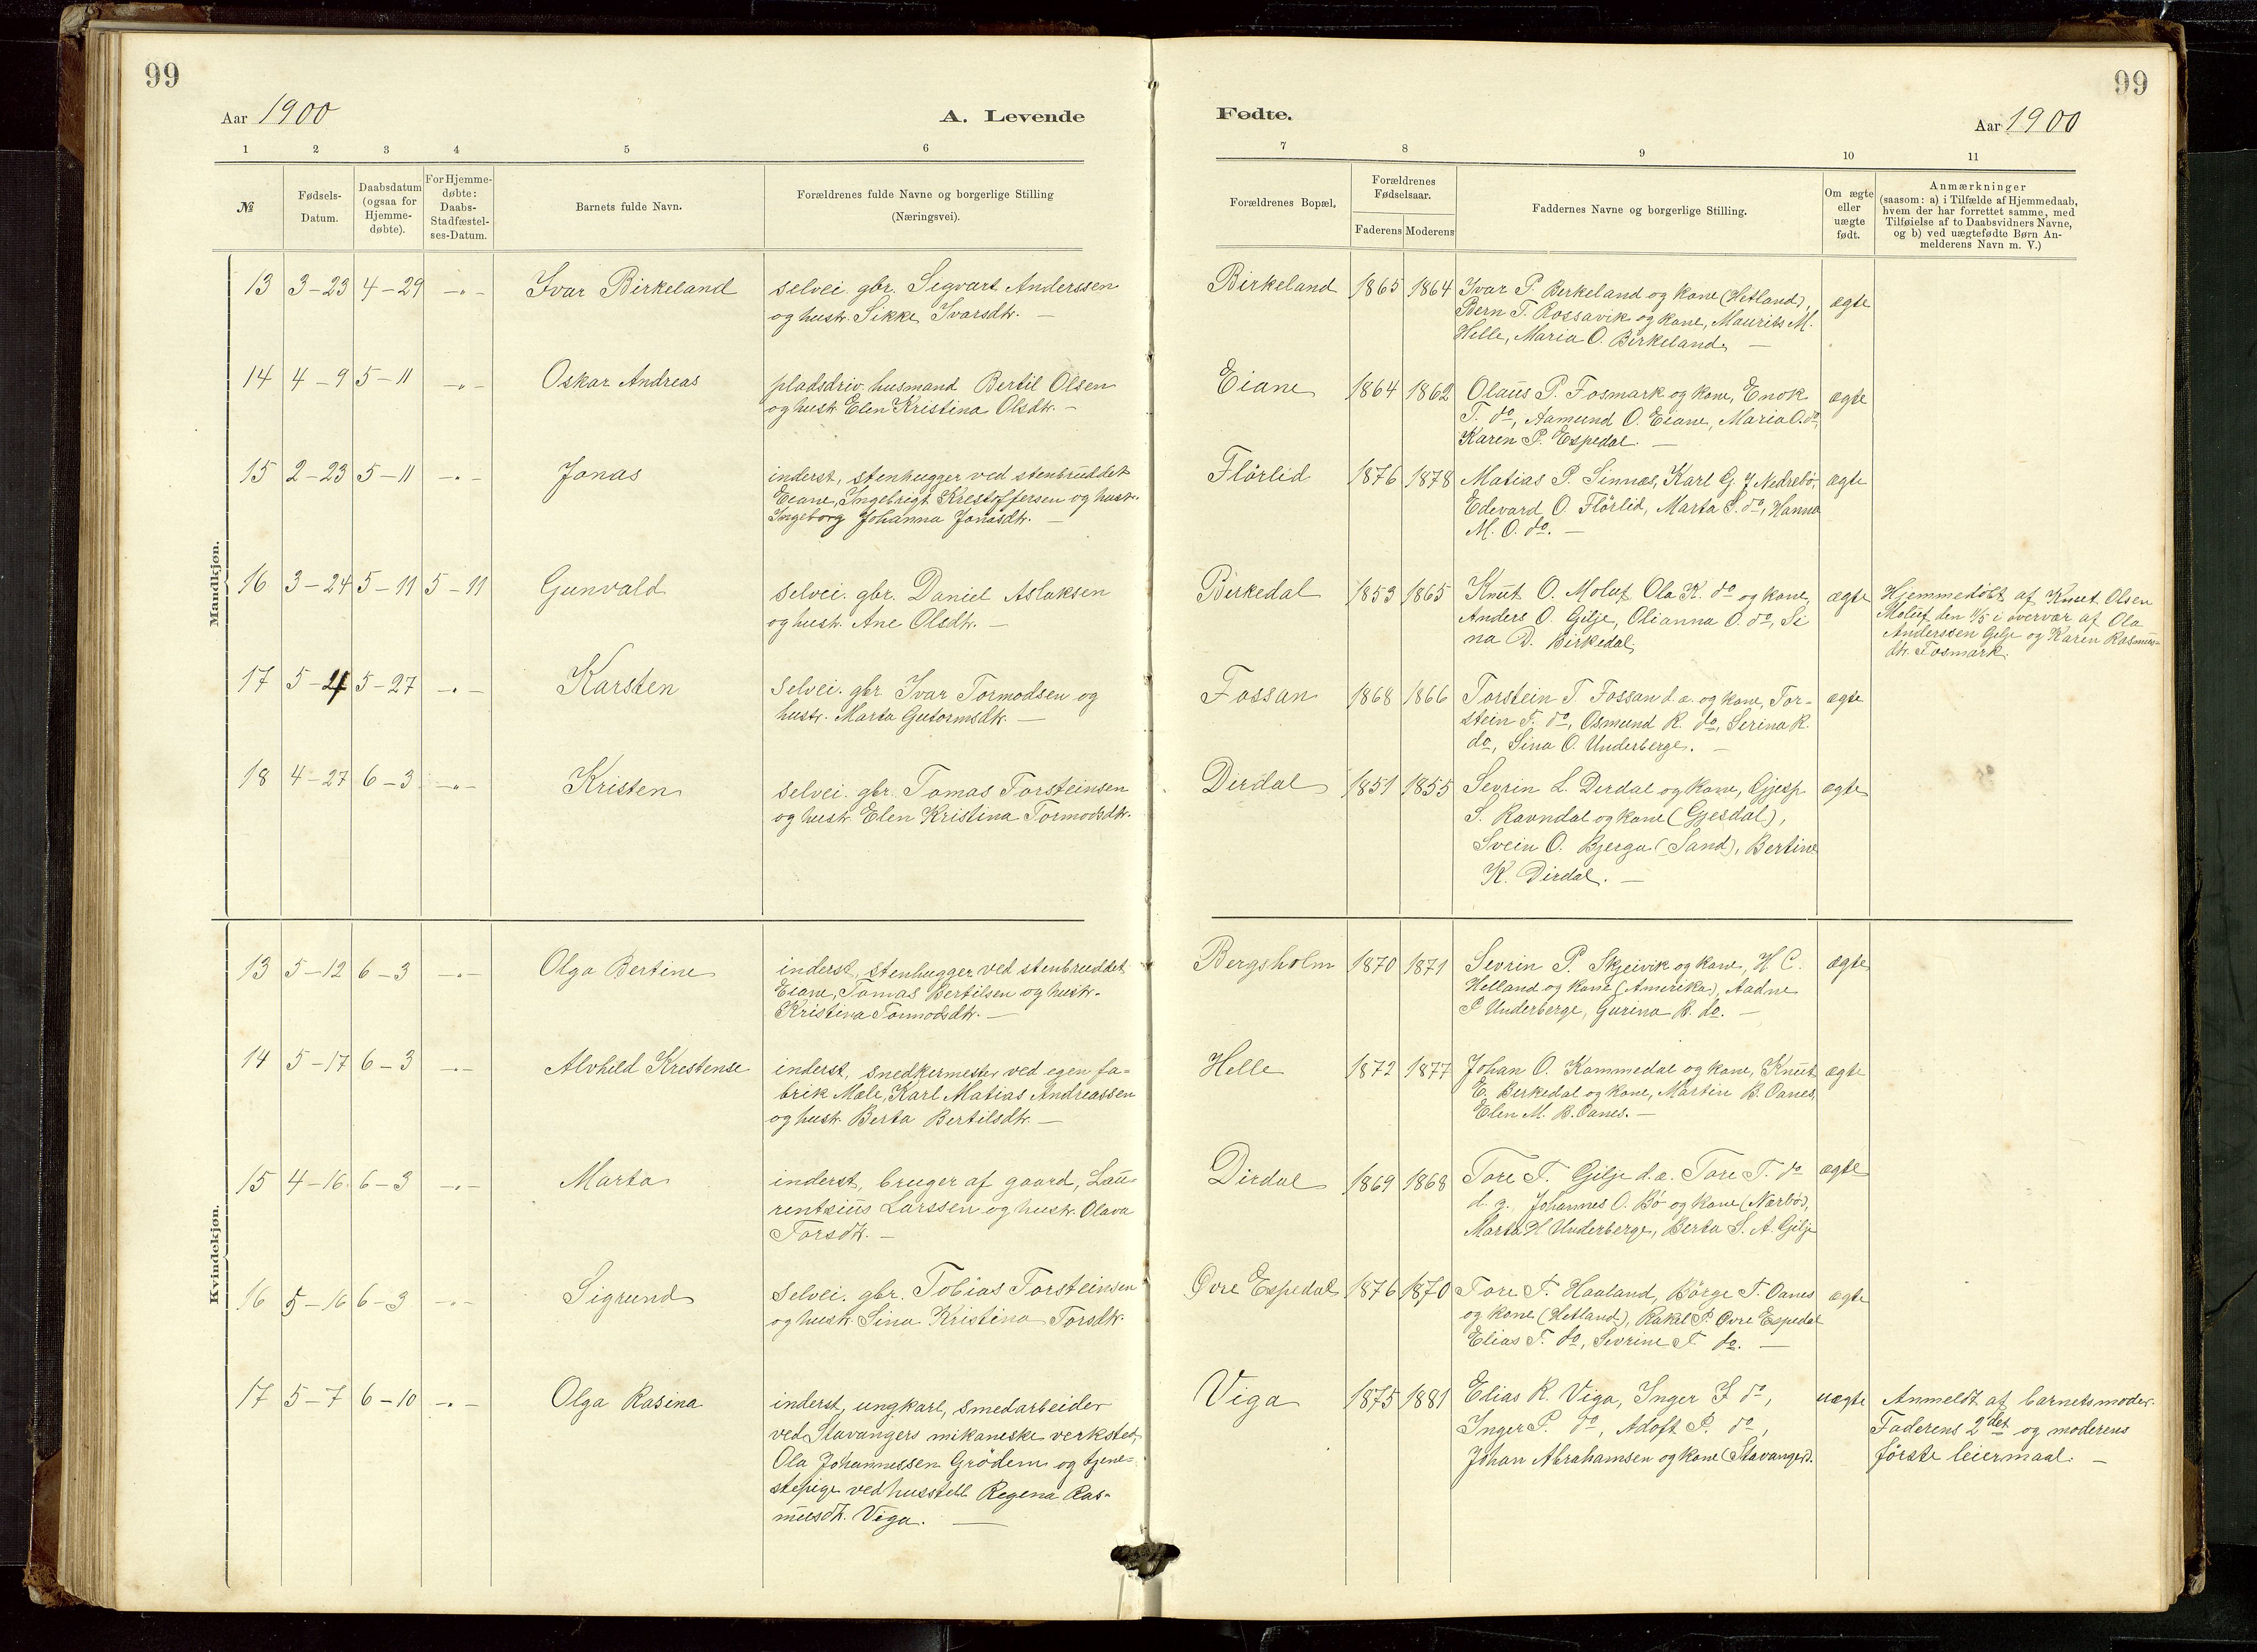 99
Aar 1900
A. Levende
1 2 3 4 5 6
№
Fødsels-
Datum.
Daabsdatum
(ogsaa for
Hjemme-
døbte).
For Hjemme-
døbte:
Daabs-
Stadfæstel-
ses-Datum.
Barnets fulde Navn.
Forældrenes fulde Navne og borgerlige Stilling
(Næringsvei).
Mandkjøn.
13 3-23 4-29 -"- Ivar Birkeland selvei. gbr. Sigvart Anderssen
og hustr. Sikke Ivarsdtr. -
14 4-9 5-11 -"- Oskar Andreas pladsdriv. husmand Bertil Olsen
og hustr. Elen Kristina Olsdtr. -
15 2-23 5-11 -"- Jonas inderst, stenhugger ved stenbruddet
Eiane, Ingebrigt Kristoffersen og hustr.
Ingeborg Johanna Jonasdtr. -
16 3-24 5-11 5-11 Gunvald selvei. gbr. Daniel Aslaksen
og hustr. Ane Olsdtr. -
17 5-4 5-27 -"- Karsten selvei. gbr. Ivar Tormodsen og
hustr. Marta Gutormsdtr. -
18 4-27 6-3 -"- Kristen selvei. gbr. Tomas Torsteinsen
og hustr. Elen Kristina Tormodsdtr.
Kvindekjøn.
13 5-12 6-3 -"- Olga Bertine inderst, stenhugger ved stenbruddet
Eiane, Tomas Bertilsen og hustr.
Kristina Tormodsdtr. -
14 5-17 6-3 -"- Alvhild Kristense inderst, snedkermester ved egen fa-
brik Mæle, Karl Matias Andreassen
og hustr. Berta Bertilsdtr. -
15 4-16 6-3 -"- Marta inderst, bruger af gaard, Lau-
rentsius Larssen og hustr. Olava
Torsdtr. -
16 5-16 6-3 -"- Sigrund selvei. gbr. Tobias Torsteinsen
og hustr. Sina Kristina Torsdtr.
17 5-7 6-10 -"- Olga Rasina inderst, ungkarl, smedarbeider
ved Stavangers mikaneske verksted,
Ola Johannessen Grödem og tjene-
stepige ved husstell Regena Ras-
musdtr. Viga. -
99
Fødte.
Aar 1900
7 8 9 10 11
Forældrenes Bopæl.
Forældrenes
Fødselsaar.
Faderens Moderens
Faddernes Navne og borgerlige Stilling.
Om ægte
eller
uægte
født.
Anmærkninger
(saasom: a) i Tilfælde af Hjemmedaab,
hvem der har forrettet samme, med
Tilføielse af to Daabsvidners Navne,
og b) ved uægtefødte Børn An-
melderens Navn m. V.)
Birkeland 1865 1864 Ivar P. Birkeland og kone (Hetland), ægte
Bern T. Rossavik og kone, Maurits M.
Helle, Maria O. Birkeland, -
Eiane 1864 1862 Olaus P. Fosmark og kone, Enok ægte
T. do, Aamund O. Eiane, Maria O. do,
Karen P. Espedal. -
Flörlid 1876 1878 Matias P. Sinnæs, Karl G. J. Nedrebö, ægte
Edevard O. Flörlid, Marta S. do, Hanna
M. O. do. -
Birkedal 1853 1865 Knut O. Moluf, Ola K. do og kone, ægte
Anders O. Gilje, Olianna O. do, Si
na D. Birkedal.
Hjemmedöbt af Knut Olsen
Moluf den 1/5 i overvær af Ola
Anderssen Gilje og Karen Rasmus-
dtr. Fosmark.
Fossan 1868 1866 Torstein T. Fossan d. æ. og kone, Tor- ægte
stein T. do, Osmund R. do, Serina R.
do, Sina O. Underberge. -
Dirdal 1851 1855 Sevrin L. Dirdal og kone, Gjesp ægte
S. Ravndal og kone (Gjesdal),
Svein O. Bjerga (Sand), Bertine
K. Dirdal. -
Bergsholm 1870 1871 Sevrin P. Skjeivik og kone, H. C. ægte
Helland og kone (Amerika), Aadne
P. Underberge, Gurina B. do. -
Helle 1872 1877 Johan O. Kommedal og kone, Knut ægte
E. Birkedal og kone, Martin B. Oanes,
Elen M. B. Oanes. -
Dirdal 1869 1868 Tore T. Gilje d. æ. Tore T. do ægte
d. y. Johannes O. Bö og kone (Nærbö),
Marta H. Underberge, Berta S. A. Gilje
Øvre Espedal 1876 1870 Tore T. Haaland, Börge T. Oanes ægte
og kone (Hetland), Rakel P. Øvre Espedal
Elias T. do, Sevrine T. do. -
Viga 1875 1881 Elias R. Viga, Inger J. do, uægte
Inger P. do, Adolf P. do,
Johan Abrahamsen og kone (Stavanger).
Anmeldt af barnets moder.
Faderens 2det og moderens
förste leiermaal. -